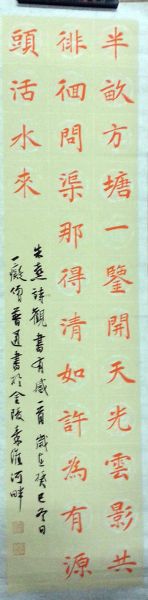 半畝方塘一鑒開天光雲影共
徘徊問渠那得清如許為有源
頭活水來
朱熹詩觀書有感一首歲在癸巳冬日
一癡僧普道書於金陵秦淮河畔